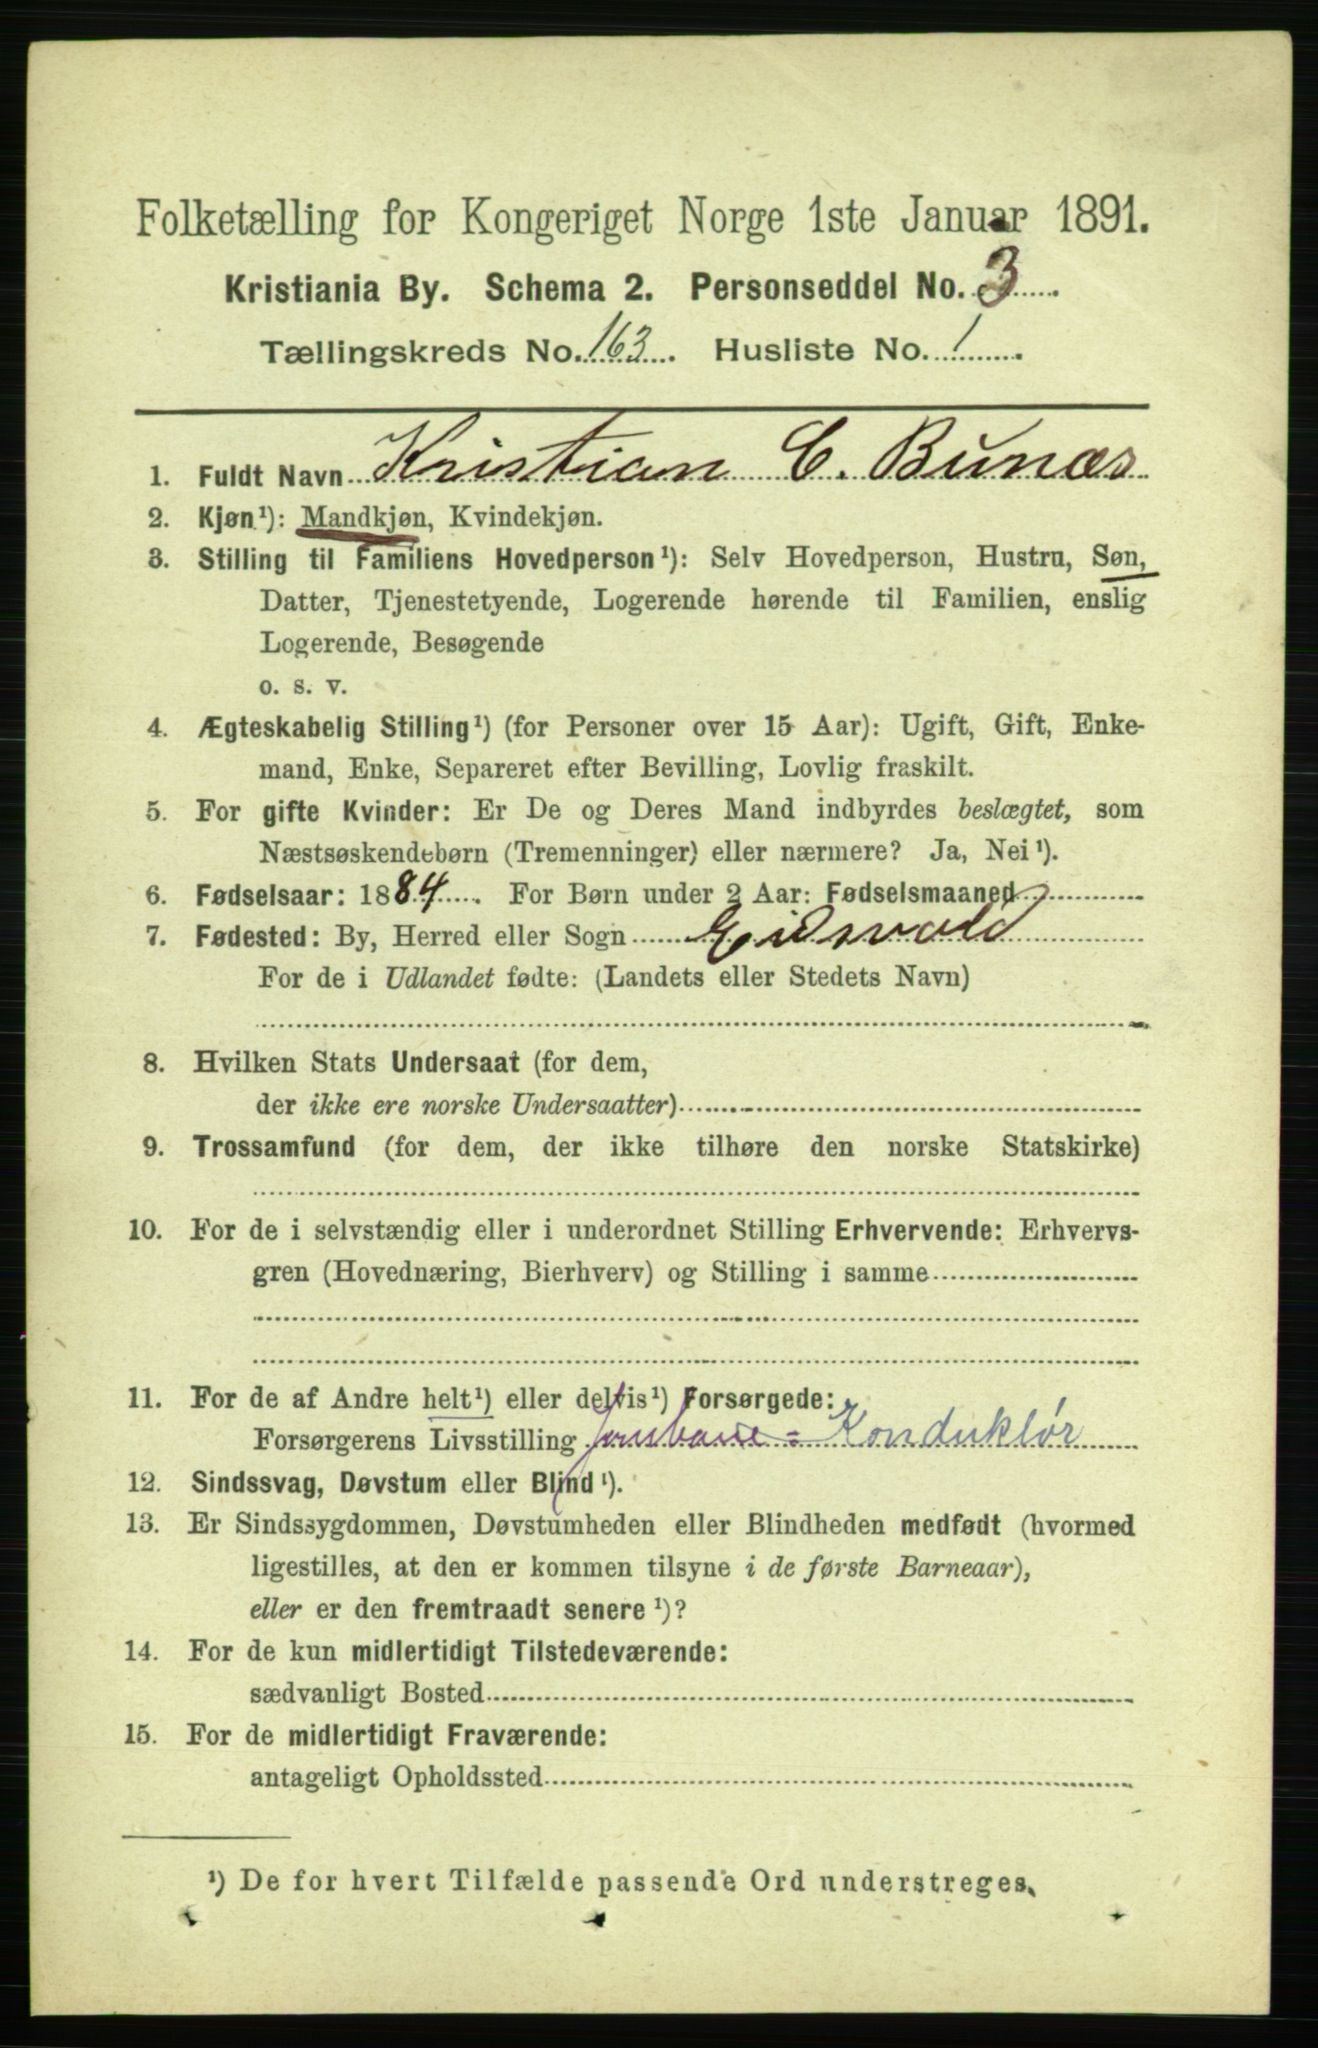 Folketælling for Kongeriget Norge 1ste Januar 1891.
Kristiania By. Schema 2. Personseddel No. 3
Tællingskreds No. 163. Husliste No. 1
1. Fuldt Navn Kristian C. Bunæs
2. Kjøn¹): Mandkjøn, Kvindekjøn.
3. Stilling til Familiens Hovedperson¹): Selv Hovedperson, Hustru, Søn,
Datter, Tjenestetyende, Logerende hørende til Familien, enslig
Logerende, Besøgende
o. s. v.
4. Ægteskabelig Stilling¹) (for Personer over 15 Aar): Ugift, Gift, Enke-
mand, Enke, Separeret efter Bevilling, Lovlig fraskilt.
5. For gifte Kvinder: Er De og Deres Mand indbyrdes beslægtet, som
Næstsøskendebørn (Tremenninger) eller nærmere? Ja, Nei¹).
6. Fødselsaar: 1884. For Børn under 2 Aar: Fødselsmaaned
7. Fødested: By, Herred eller Sogn Eidsvold
For de i Udlandet fødte: (Landets eller Stedets Navn)
8. Hvilken Stats Undersaat (for dem,
der ikke ere norske Undersaatter)
9. Trossamfund (for dem, der ikke tilhøre den norske Statskirke)
10. For de i selvstændig eller i underordnet Stilling Erhvervende: Erhvervs-
gren (Hovednæring, Bierhverv) og Stilling i samme
11. For de af Andre helt¹) eller delvis¹) Forsørgede:
Forsørgerens Livsstilling Jernbane=Konduktør
12. Sindssvag, Døvstum eller Blind¹).
13. Er Sindssygdommen, Døvstumheden eller Blindheden medfødt (hvormed
ligestilles, at den er kommen tilsyne i de første Barneaar),
eller er den fremtraadt senere¹)?
14. For de kun midlertidigt Tilstedeværende:
sædvanligt Bosted
15. For de midlertidigt Fraværende:
antageligt Opholdssted
¹) De for hvert Tilfælde passende Ord understreges.